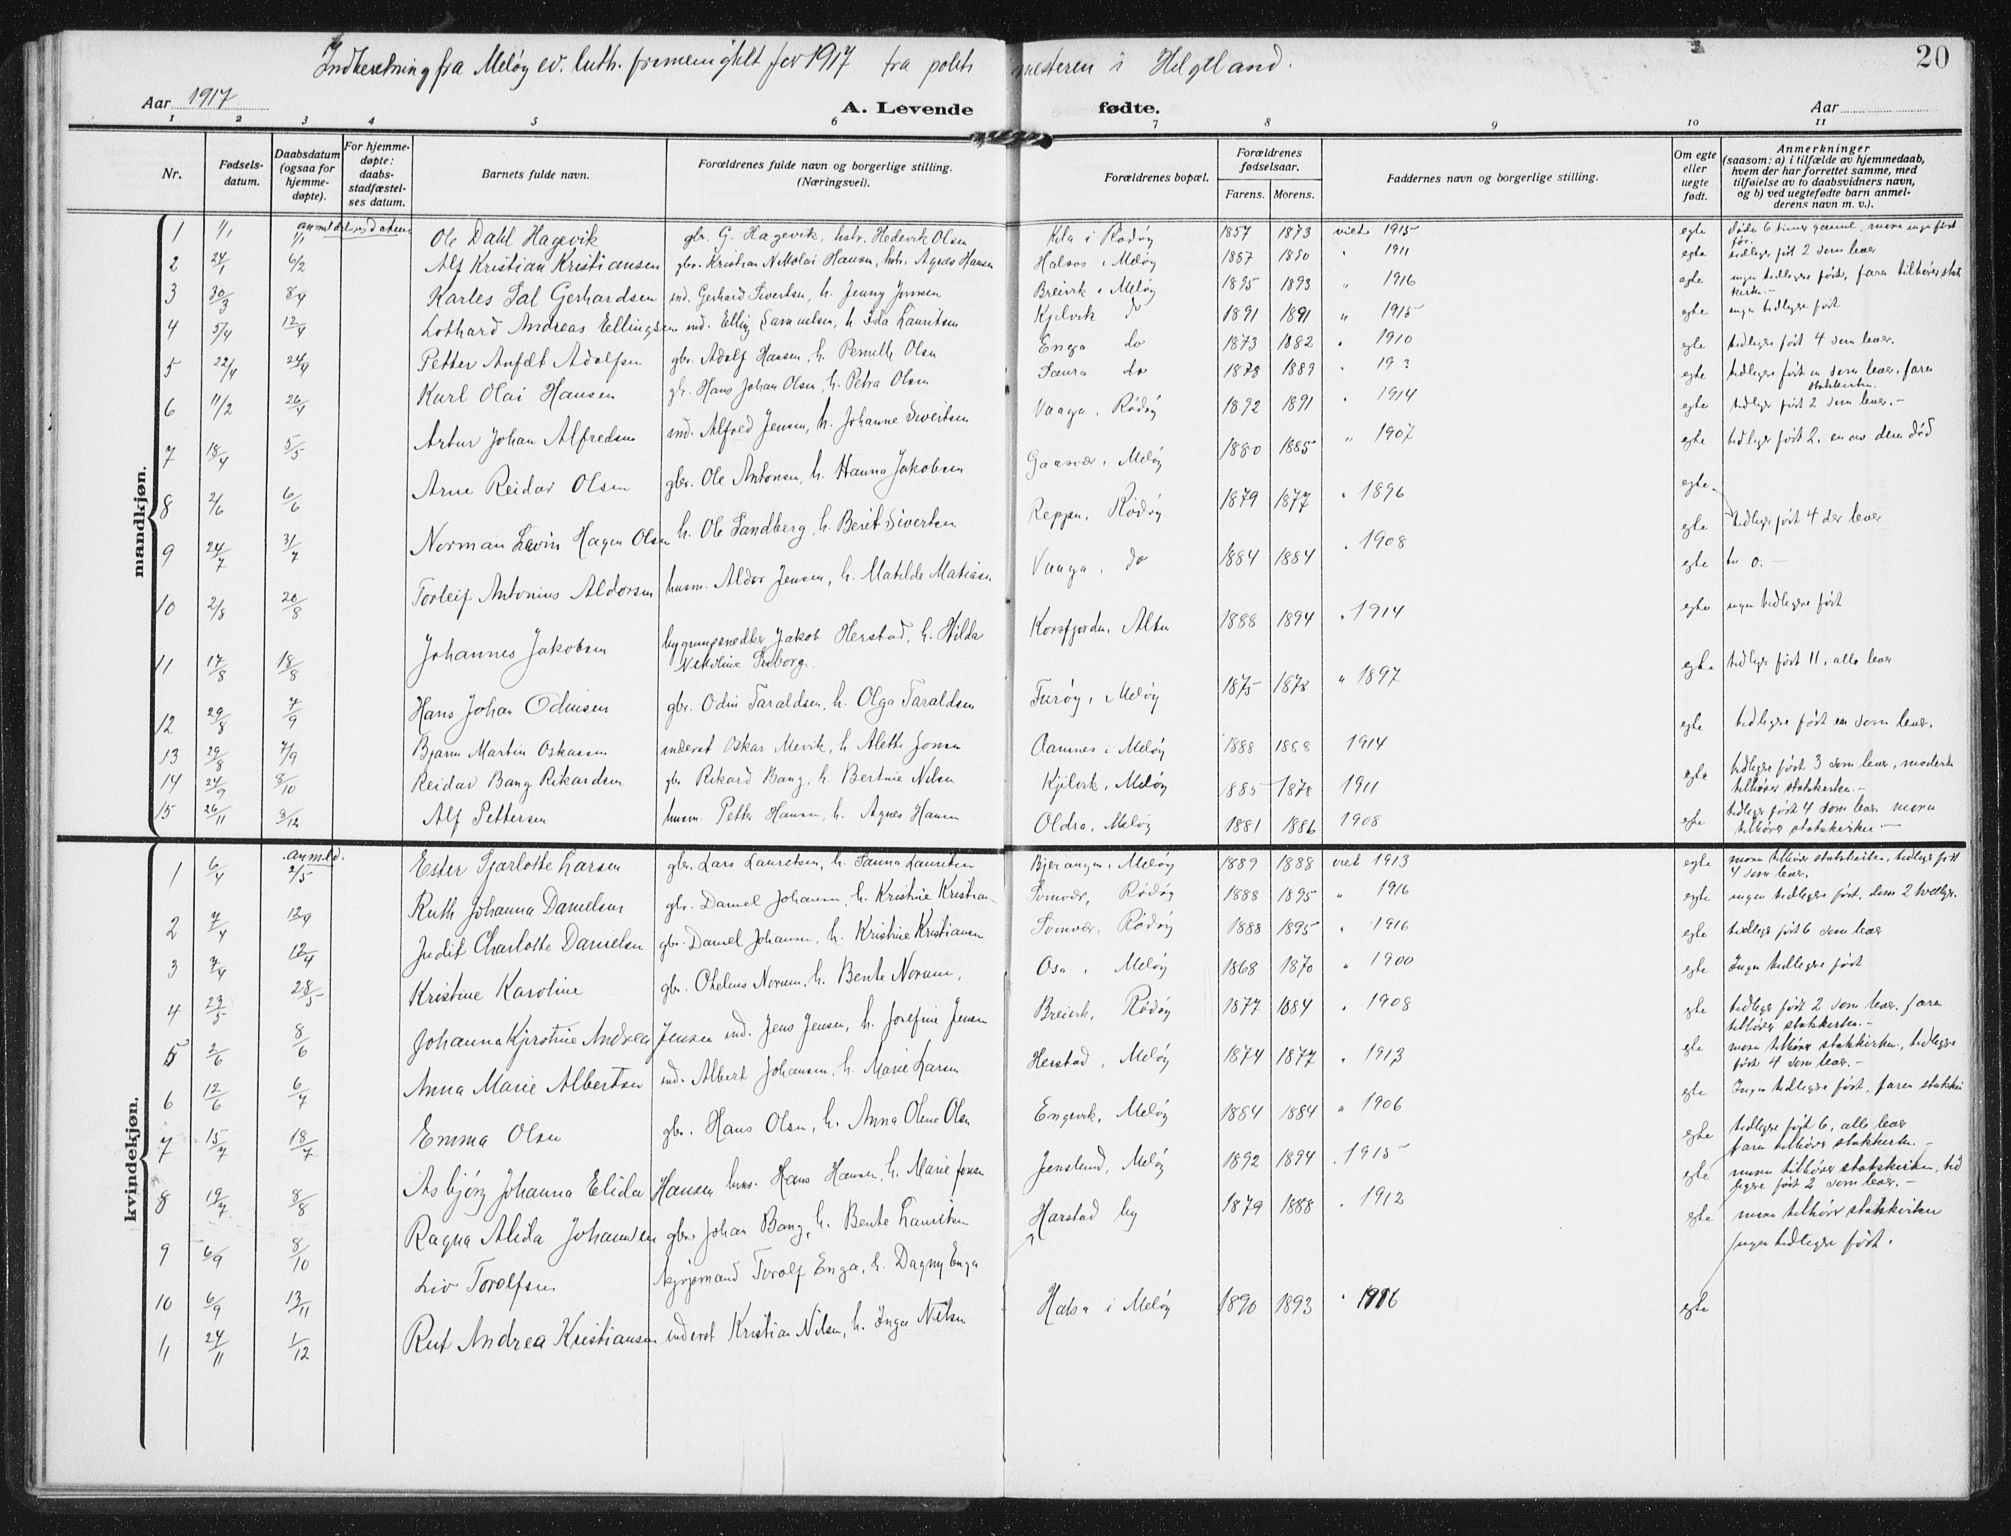 Indberetning fra Meløy ev. luth. frimenighet for 1917 fra politimesteren i Helgeland.
20
Aar 1917
A. Levende fødte.
Aar
1 2 3 4 5 6 7 8 9 10 11
Nr.
Fødsels-datum.
Daabsdatum (ogsaa for hjemme-døpte).
For hjemme-døpte: daabs-stadfæstel-ses datum.
Barnets fulde navn.
Forældrenes fulde navn og borgerlige stilling. (Næringsvei).
Forældrenes bopæl.
Forældrenes fødselsaar.
Farens. Morens.
Faddernes navn og borgerlige stilling.
Om egte eller uegte født.
Anmerkninger (saasom: a) i tilfælde av hjemmedaab, hvem der har forrettet samme, med tilføielse av to daabsvidners navn, og b) ved uegtefødte barn anmel-derens navn m. v.).
mandkjøn.
anmeldelsesdatum
1 1/1 1/1 Ole Dahl Hagevik gbr. G. Hagevik, hstr. Hedevik Olsen Kila i Rødøy 1857 1873 viet 1915 egte
2 24/1 6/2 Alf Kristian Kristiansen gbr. Kristian Nikolai Hansen, hstr. Agnes Hansen Halsos i Meløy 1887 1890 " 1911 egte tidligere født 2 som lever
3 30/3 8/4 Karles Sal Gerhardsen ind. Gerhard Sivertsen, h. Jenny Jensen Breivik i Meløy 1895 1893 " 1916 egte ingen tidligere født, faren tilhører statskirken.-
4 5/4 12/4 Lothard Andreas Ellingsen ind. Elling Samuelsen, h. Ida Lauritsen Kjelvik do 1891 1891 " 1915 egte ingen tidligere født
5 22/4 24/4 Petter Anfelt Adolfsen gbr. Adolf Hansen, h. Pernelle Olsen Enga do 1873 1882 " 1910 egte tidligere født 4 som lever.
6 11/2 26/4 Karl Olai Hansen gbr. Hans Johan Olsen, h. Petra Olsen Saura do 1878 1889 " 19? egte tidligere født en som lever, faren statskirken.
7 18/4 5/5 Artur Johan Alfredsen ind. Alfred Jensen, h. Johanne Sivertsen Vaaga, Rødøy 1892 1891 " 1914 egte tidligere født 2 som lever.-
8 2/6 6/6 Arne Reidar Olsen gbr. Ole Antonsen, h. Hanna Jakobsen Gaasvær, Meløy 1880 1885 " 1907 egte tidligere født 2, en av dem død
9 24/7 31/7 Norman Levin Hagen Olsen h. Ole Sandberg, h. Berit Sivertsen Reppen, Rødøy 1879 1877 " 1896 egte
10 2/8 20/8 Torleif Antonius Aldorsen husm. Aldor Jensen, h. Matilde Matiasen Vaaga, do 1884 1884 " 1908 egte tidligere født 4 der lever
egte
11 17/8 18/8 Johannes Jakobsen bygningssnedker Jakob Herstad, h. Hilda Nikoline Korsfjorden, Alten 1888 1894 " 1914 egte ingen tidligere født
12 29/8 7/9 Hans Johan Odinsen gbr. Odin Taraldsen, h. Olga Taraldsen Furøy, Meløy 1875 1878 " 1897 egte tidligere født 11, alle lever
13 29/8 7/9 Bjarne Martin Oskarsen inderst Oskar Mevik, h. Alette Jensen Aamnes i Meløy 1888 1888 1914 egte tidligere født en som lever.
14 24/9 8/10 Reidar Bang Rikardsen gbr. Rikard Bang, h. Bertine Nilsen Kjelvik, Meløy 1885 1878 1911 egte tidligere født 3 som lever, moderen tilhører statskirken.-
15 26/11 3/12 Alf Pettersen husm. Petter Hansen, h. Agnes Hansen Oldra, Meløy 1881 1886 1908 egte tidligere født 4 som lever moren tilhører statskirken -
kvindekjøn.
anmeld.
1 6/4 2/5 Ester Sjarlotte Larsen gbr. Lars Lauritsen, h. Sanna Lauritsen Bjerangen, Meløy 1889 1888 viet 1913 egte moren tilhører statskirken, tidligere født 4 som lever.
2 7/4 12/4 Ruth Johanna Danielsen gbr. Daniel Johansen, h. Kristine Kristian- Somvær, Rødøy 1888 1895 " 1916 egte ingen tidligere født, disse 2 tvillinger.
3 7/4 12/4 Judit Charlotte Danielsen gbr. Daniel Johansen, h. Kristine Kristiansen Somvær, Rødøy 1888 1895 " 1916 egte tidligere født 6 som lever
4 23/5 28/5 Kristine Karoline gbr. Otelius Norum, h. Bente Norum, Osa, Meløy 1868 1870 " 1900 egte Ingen tidligere født
5 2/6 8/6 Johanna Kjerstine Andrea Jensen ind. Jens Jensen, h. Josefine Jensen Breivik, Rødøy 1877 1884 " 1908 egte tidligere født 2 som lever, faren tilhører statskirken.-
6 12/6 6/7 Anna Marie Albertsen ind. Albert Johansen, h. Marie Larsen Herstad, Meløy 1874 1877 " 1913 egte moren tilhører statskirken, tidligere født 4 som lever.-
7 15/7 18/7 Emma Olsen gbr. Hans Olsen, h. Anna Oline Olsen Engevik, Meløy 1884 1884 " 1906 egte Ingen tidligere født, faren statskir
8 19/7 8/8 Asbjørg Johanna Elida Hansen hus. Hans Hansen, h. Marie Jonsen Jenslund, Meløy 1892 1894 " 1915 egte tidligere født 6, alle lever faren tilhører statskirken.-
9 6/9 8/10 Ragna Alida Johansen gbr. Johan Bang, h. Bente Lauritsen Harstad by 1879 1888 " 1912 egte moren tilhører statskirken, tidligere født 2 som lever.-
10 6/9 13/11 Liv Torolfsen Torolf Enga, h. Dagny Enga egte moren tilhører statskirken
Ingen tidligere født.
11 24/11 1/12 Rut Andrea Kristiansen inderst Kristian Nilsen, h. Inga Nilsen Halsa i Meløy 1890 1893 " 1916 egte